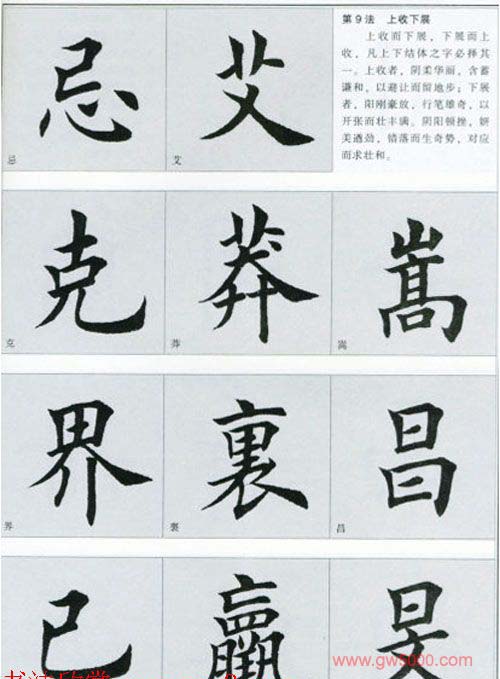 第9法 上收下展
上收而下展，下展而上
收，凡上下结体之字必择其
一。上收者，阴柔华丽，含蓄
谦和，以避让而留地步；下展
者，阳刚豪放，行笔雄奇，以
开张而壮丰满。阴阳顿挫，妍
美遒劲，错落而生奇勢，对应
而求壮和。
忌 艾
忌 艾
克 莽 嵩
克 莽 嵩
界 裏 昌
界 昌
已
www.gw5000.com